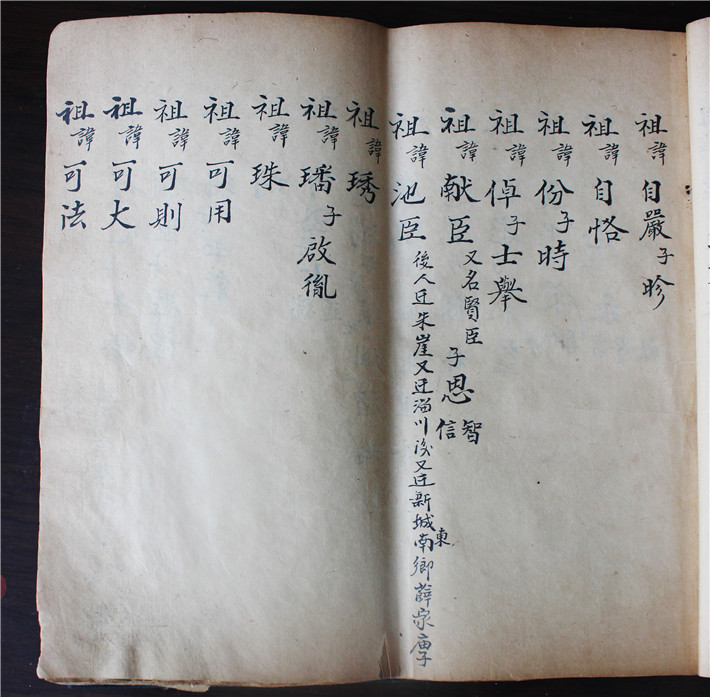 祖諱自嚴子昣
祖諱自恪
祖諱份子時
祖諱倬子士舉
祖諱献臣又名賢臣子恩智信
祖諱池臣後人迁朱崖又迁淄川後又迁新城東南鄉薛家庙子
祖諱琇
祖諱璠子啟胤
祖諱珠
祖諱可用
祖諱可則
祖諱可大
祖諱可法